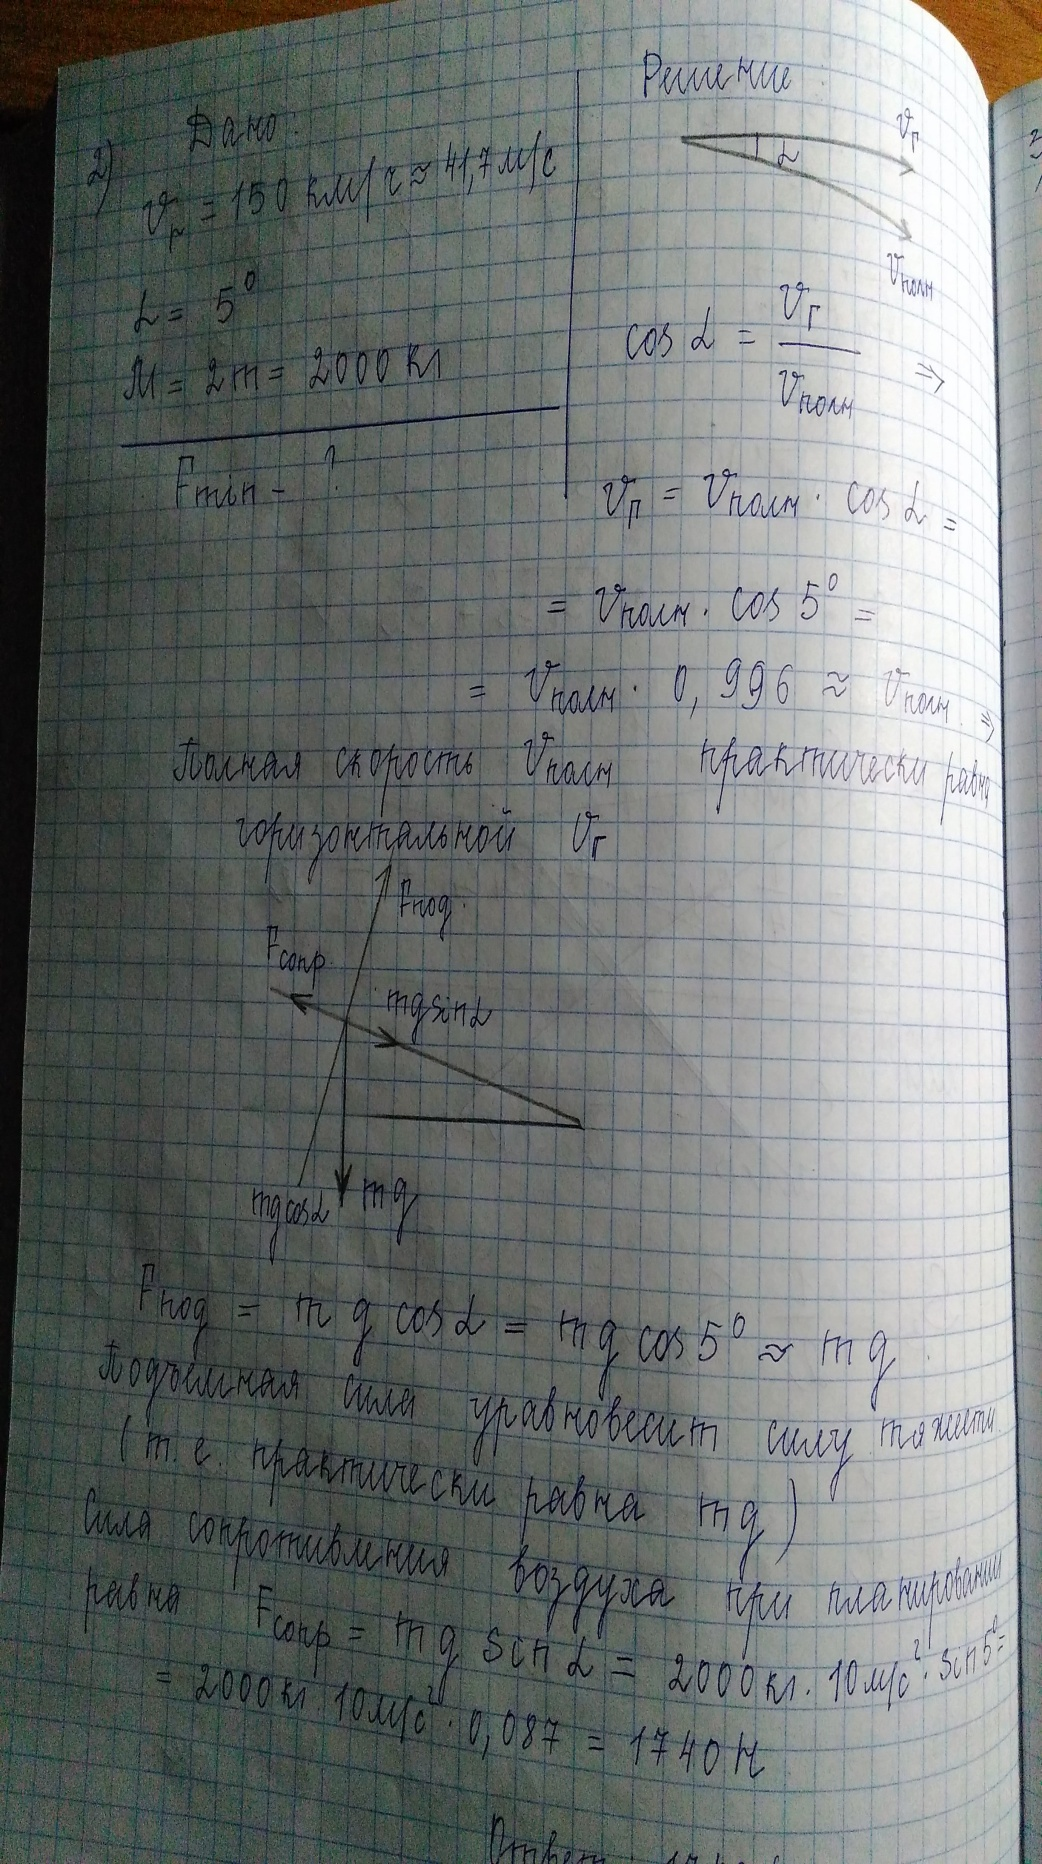 Решение
Дано:
2)
vг = 150 км/ч ≈ 41,7 м/с
vг
α
vполн
α = 5°
cos α = vг / vполн ⇒
M = 2m = 2000 кг
Fmin - ?
vг = vполн · cos α =
= vполн · cos 5° =
= vполн · 0,996 ≈ vполн ⇒
Полная скорость vполн практически равна
горизонтальной vг
Fпод.
Fсопр.
mg sin α
mg cos α
mg
Fпод = mg cos α = mg cos 5° ≈ mg.
Подъемная сила уравновесит силу тяжести
(т.е. практически равна mg)
Сила сопротивления воздуха при планировании
равна Fсопр = mg sin α = 2000 кг · 10 м/с² · sin 5° =
= 2000 кг · 10 м/с² · 0,087 = 1740 Н
Ответ: